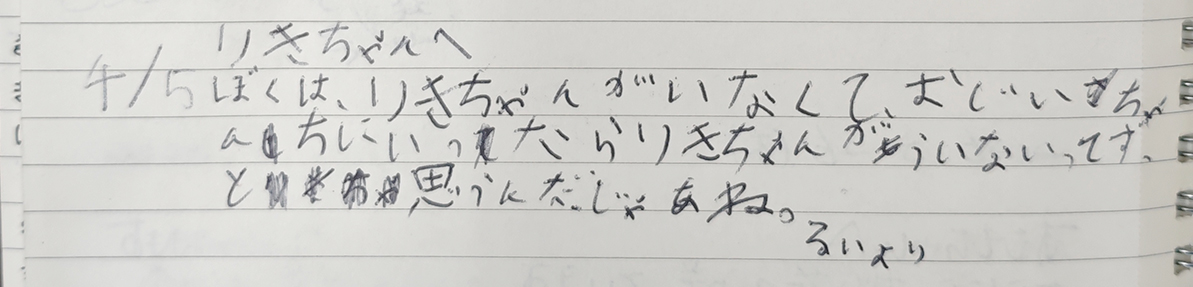 りきちゃんへ
4/5 ぼくは、りきちゃんがいなくて、おじいちゃ
んちにいったらりきちゃんがもういないってす、
と思うんだじゃあね。
るいより